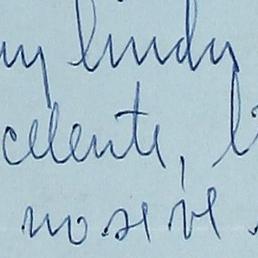 uy lindy
celente, l
no se ve